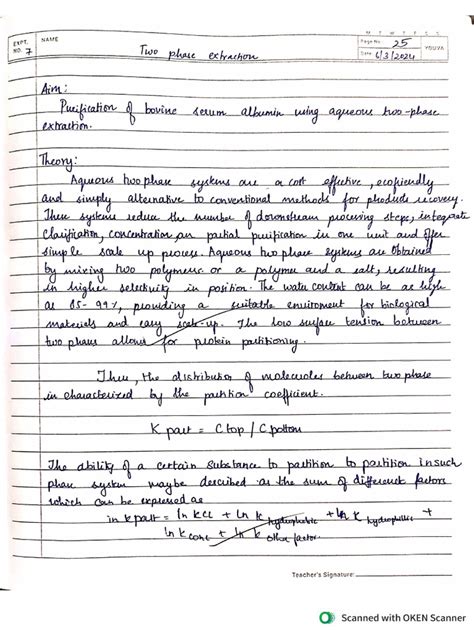 EXPT. NO. 7
NAME
Two phase extraction
M T W T F S S
Page No.: 25
Date: 6/3/2024
YOUVA
Aim:
Purification of bovine serum albumin using aqueous two-phase
extraction.
Theory:
Aqueous two phase systems are a cost effective, ecofriendly
and simply alternative to conventional methods for products recovery.
These systems reduce the number of downstream procesing steps, integrate
Clarification, concentration, an partial purification in one unit and offer
simple scale up process. Aqueous two phase systems are obtained
by mixing two polymers or a polymer and a salt, resulting
in higher selectivity in position. The water content can be as high
as 85-99%, providing a suitable enviroment for biological
materials and easy scale-up. The low surface tension between
two phases allows for protein partitioning.
Thus, the distribution of molecules between two phase
in characterized by the partition coefficient.
K part = C top / C bottom
The ability of a certain substance to partition to partition in such
phase system maybe described as the sum of different factors
which can be expressed as
ln k part = ln k el + ln k hydrophobic + ln k hydrophillic +
ln k conc + ln k other factor.
Teacher's Signature:
Scanned with OKEN Scanner